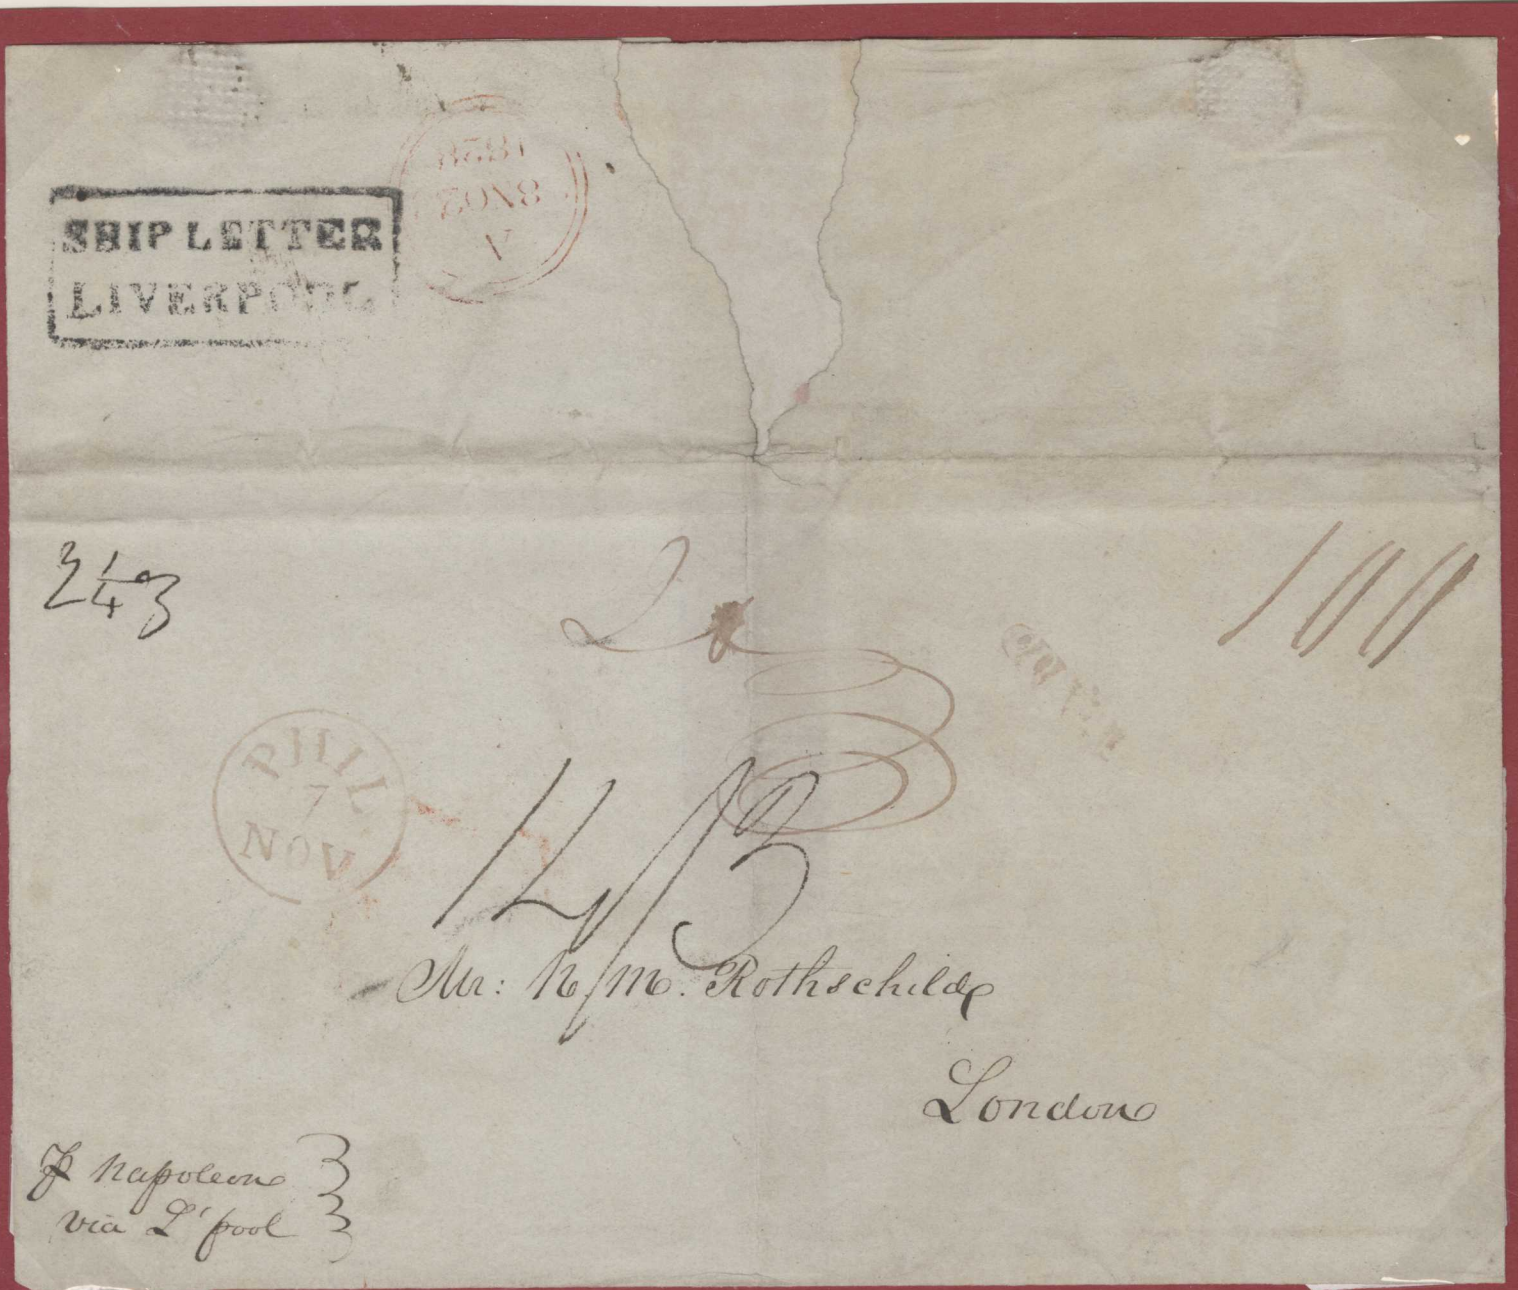 SHIP LETTER
LIVERPOOL
A
8NO28
1828
2 1/4 oz
2
100
PAID
PHIL
7
NOV
14/3
Mr: N. M. Rothschild
London
P Napoleon
via L'pool